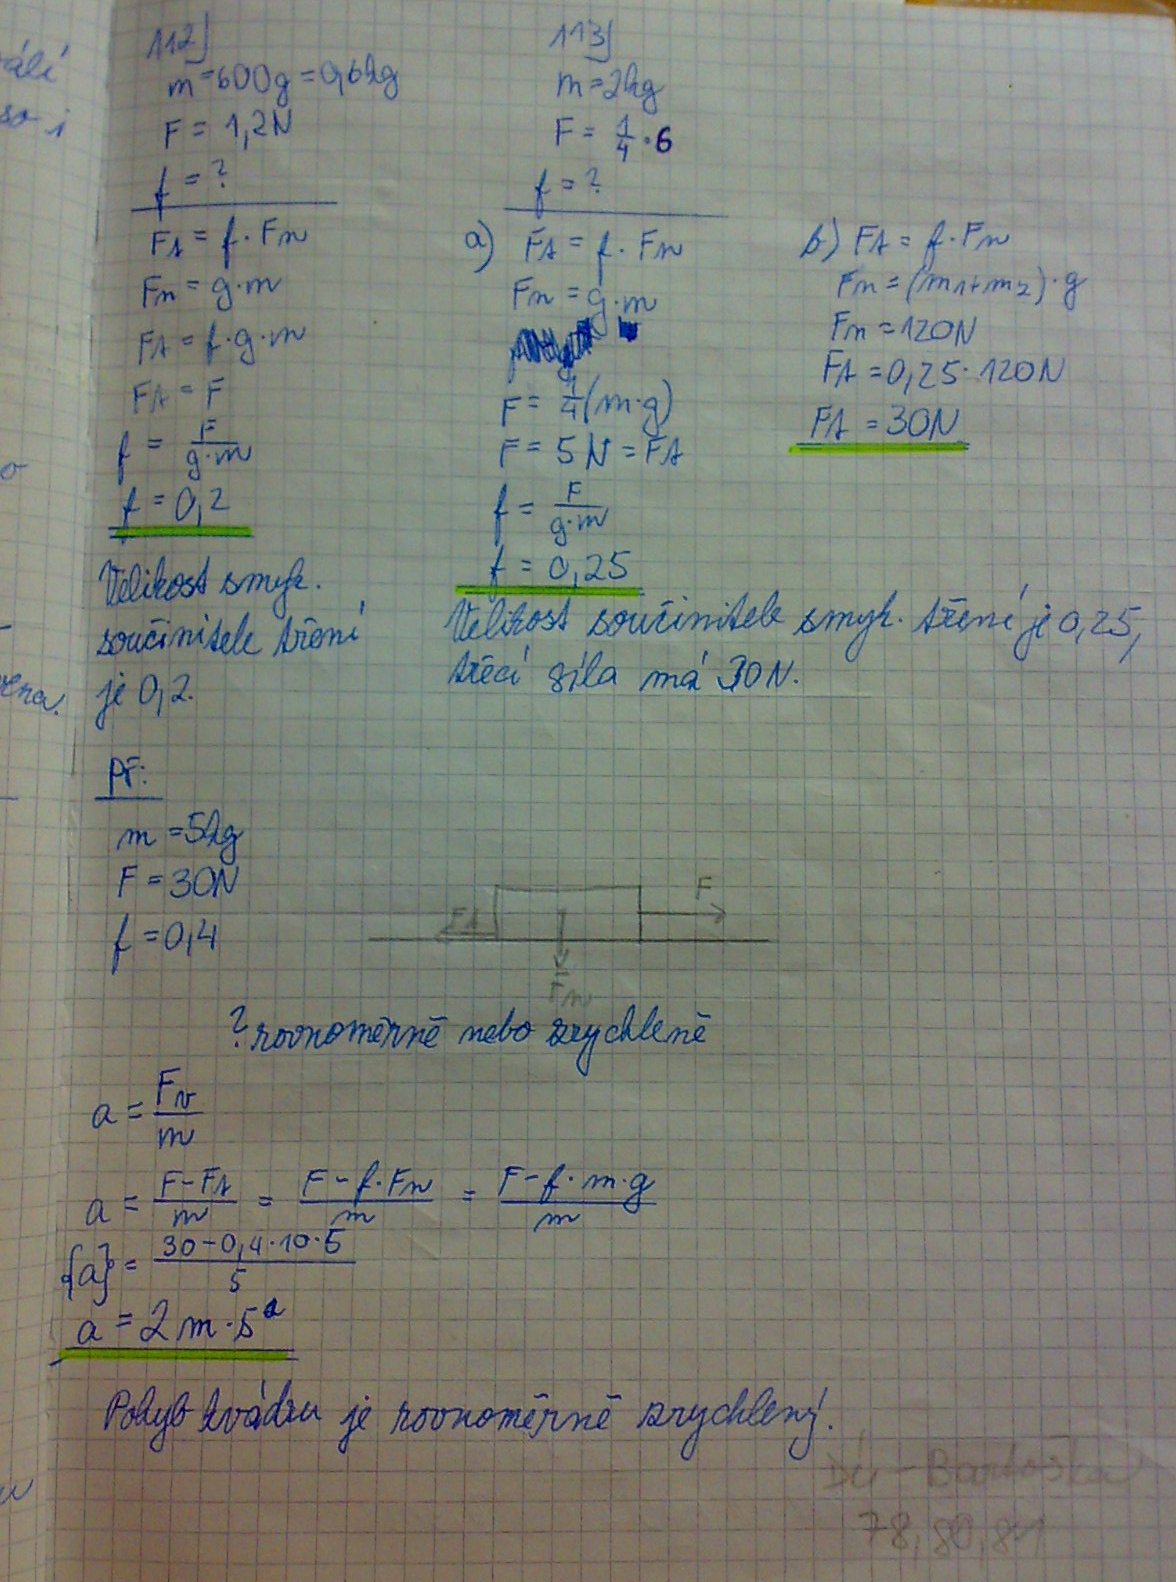 112)
m = 600g = 0,6kg
F = 1,2N
f = ?
Ft = f · Fn
Fn = g·m
Ft = f·g·m
Ft = F
f = F/g·m
f = 0,2
Velikost smyk.
součinitele tření
je 0,2.
113)
m = 2kg
F = 1/4 · G
f = ?
a) Ft = f · Fn
Fn = g·m
F = 1/4 (m·g)
F = 5N = Ft
f = F/g·m
f = 0,25
b) Ft = f·Fn
Fn = (m1+m2)·g
Fn = 120N
Ft = 0,25·120N
Ft = 30N
Velikost součinitele smyk. tření je 0,25,
třecí síla má 30N.
Př:
m = 5kg
F = 30N
f = 0,4
Ft
F
Fn
? rovnoměrně nebo zrychleně
a = Fv/m
a = F-Ft/m = F-f·Fn/m = F-f·m·g/m
{a} = 30-0,4·10·5/5
a = 2 m·s²
Pohyb kvádru je rovnoměrně zrychlený.
Dú - Bartuška
78, 80, 81